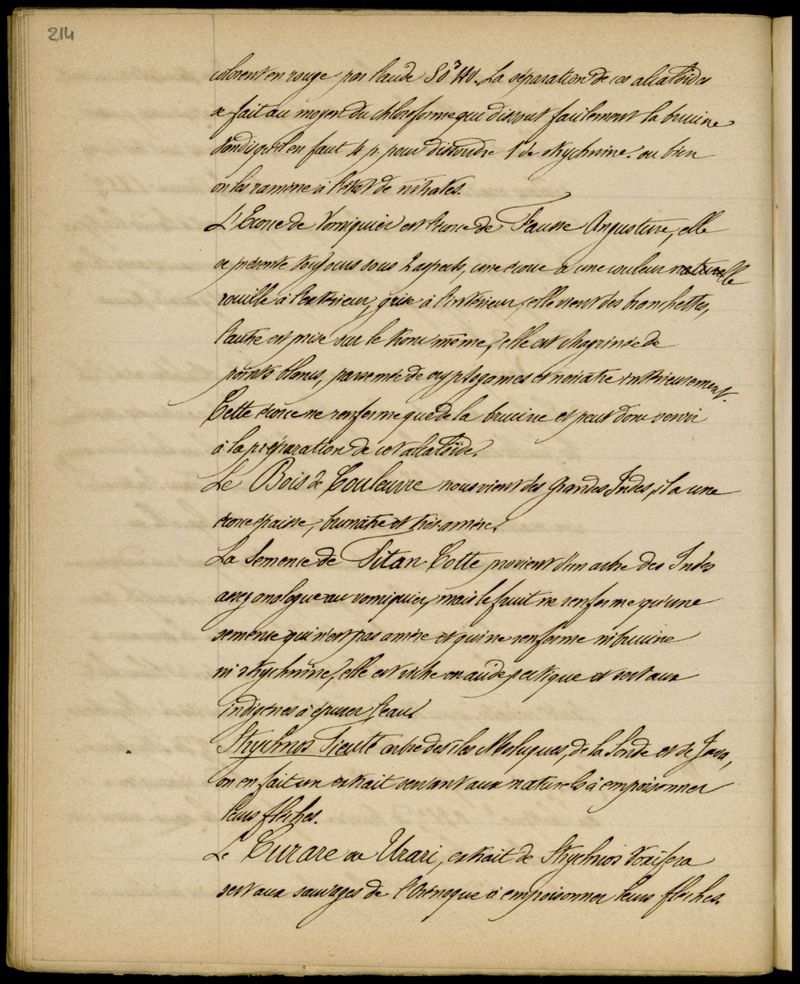 214
colorent en rouge par l'acide SO³HO. La séparation de ces alcaloïdes
se fait au moyen du chloroforme qui dissout facilement la brucine
tandis qu'il en faut 4 p. pour dissoudre 1 de strychnine. ou bien
on les ramène à l'état de nitrates.
L'Ecorce de Vomiquier est l'écorce de Fausse Angusture, elle
se présente toujours sous 2 aspects, une écorce a une couleur naturelle
rouille à l'extérieur, grise à l'intérieur, elle vient des branchettes,
l'autre est prise sur le tronc même, elle est chagrinée de
points blancs, parsemée de cryptogames et noirâtre intérieurement.
Cette écorce ne renferme que de la brucine et peut donc servir
à la préparation de cet alcaloïde.
Le Bois de Couleuvre nous vient des Grandes Indes, il a une
écorce épaisse, brunâtre et très amère.
La Semence de Titan Cotte provient d'un arbre des Indes
assez analogue au vomiquier, mais le fruit ne renferme qu'une
semence qui n'est pas amère et qui ne renferme ni brucine
ni strychnine, elle est riche en acide pectique et sert aux
indigènes à épurer l'eau.
Strychnos Tieuté arbre des îles Moluques, de la Sonde et de Java,
on en fait un extrait servant aux naturels à empoisonner
leurs flèches.
Le Curare ou Urari, extrait de Strychnos toxifera
sert aux sauvages de l'Orénoque à empoisonner leurs flèches.